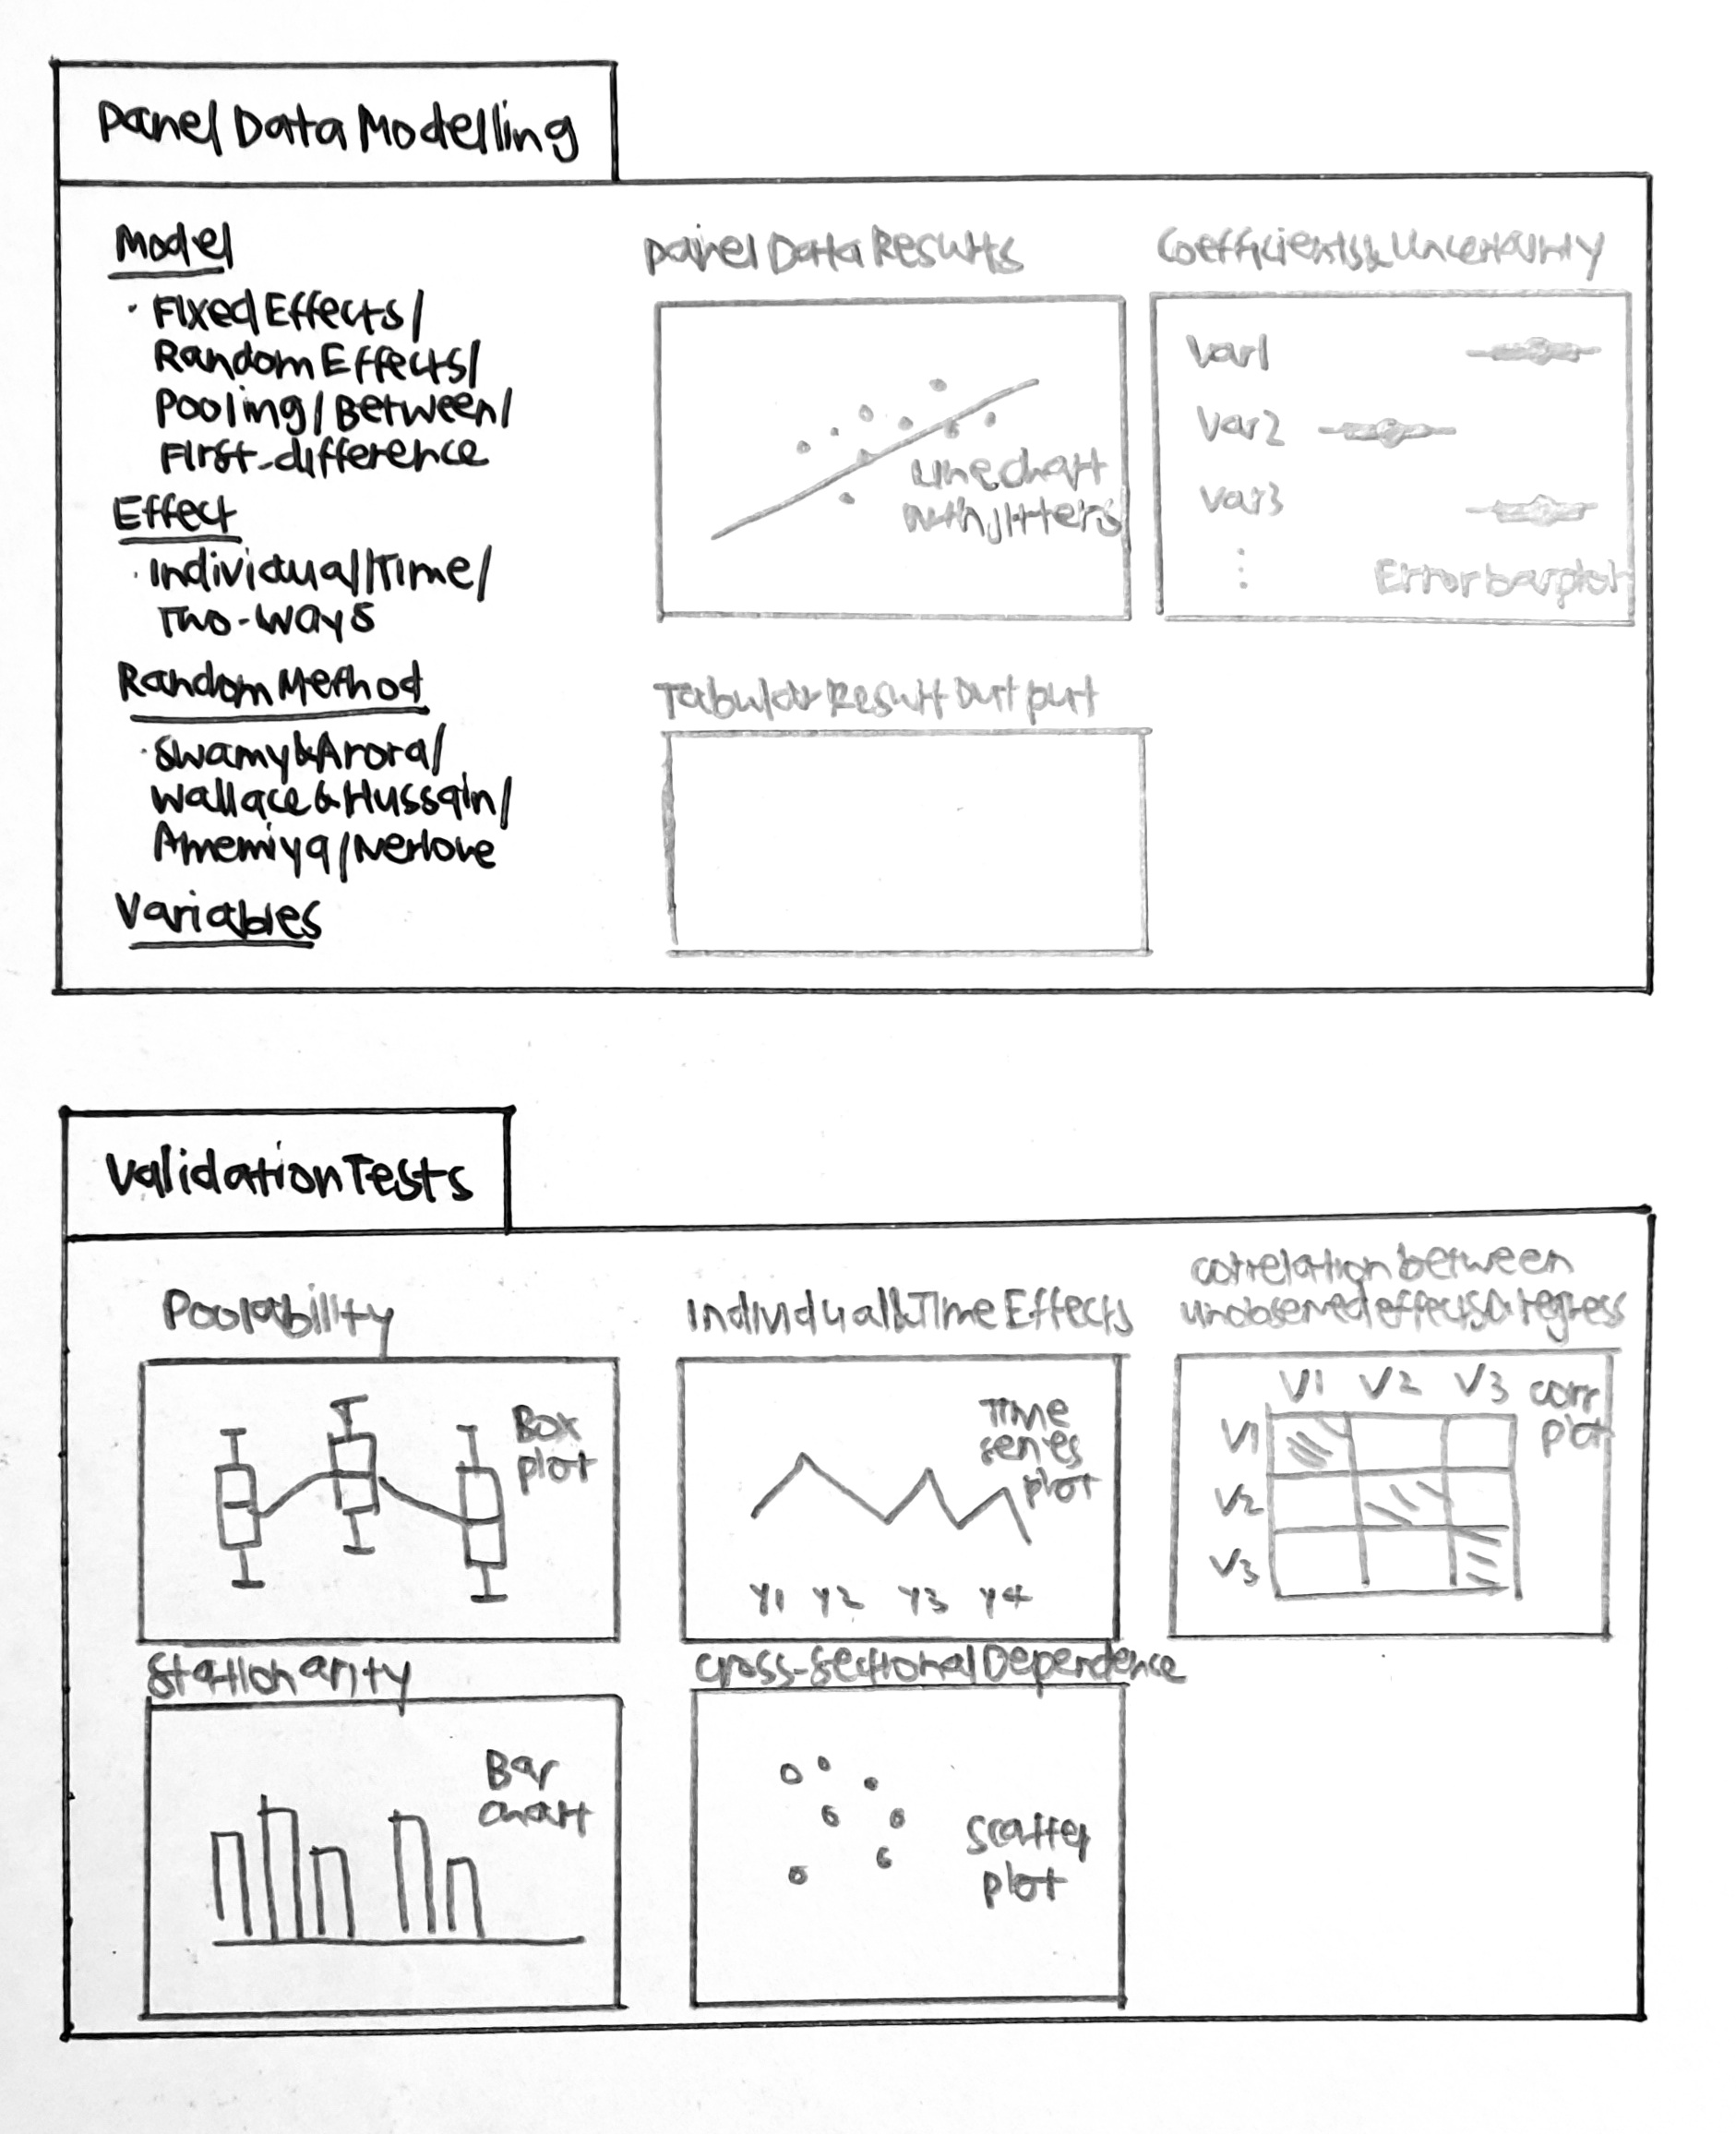 Panel Data Modelling
Model
· Fixed Effects/
Random Effects/
Pooling/Between/
First-difference
Effect
· Individual/Time/
Two-Ways
Random Method
· Swamy&Arora/
Wallace & Hussain/
Amemiya/Nerlove
Variables
Panel Data Results
Line chart
with jitters
Coefficients & Uncertainty
Var1
Var2
Var3
Error bar plot
Tabular Result Output
Validation Tests
Poolability
Box
plot
Individual & Time Effects
Time
series
plot
Y1 Y2 Y3 Y4
correlation between
unobserved effects & regress
V1 V2 V3
corr
plot
V1
V2
V3
Stationarity
Bar
chart
Cross-Sectional Dependence
Scatter
plot